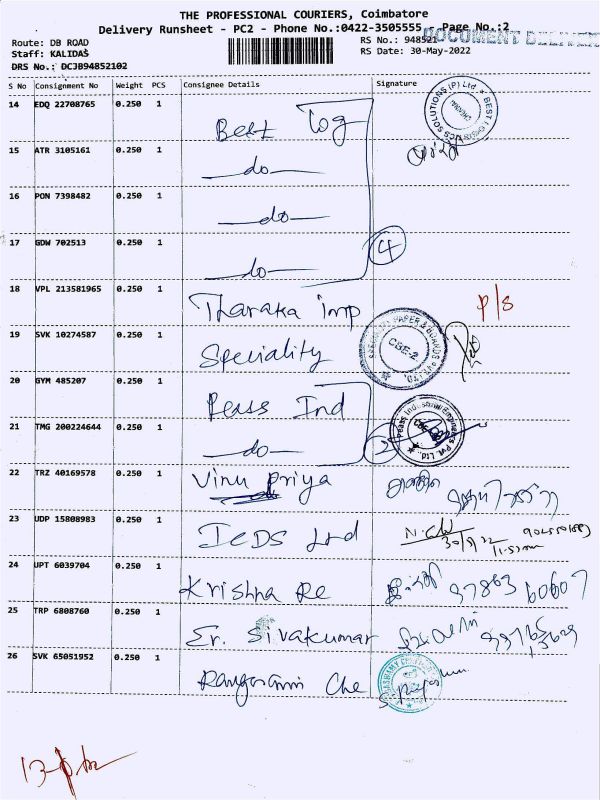 THE PROFESSIONAL COURIERS, Coimbatore
Delivery Runsheet - PC2 - Phone No.:0422-3505555 - Page No.:2
DOCUMENT DELIVER
Route: DB ROAD
RS No.: 948521
Staff: KALIDAS
RS Date: 30-May-2022
DRS No.: DCJB94852102
S No Consignment No Weight PCS Consignee Details Signature
14 EDQ 22708765 0.250 1 Best Log
15 ATR 3105161 0.250 1 do
16 PON 7398482 0.250 1 do
17 GDW 702513 0.250 1 do
4
18 VPL 213581965 0.250 1 Tharaka Imp P/S
19 SVK 10274587 0.250 1 Speciality
CBE-2.
20 GYM 485207 0.250 1 Peass Ind
Peass Industrial Engineers Pvt. Ltd.
21 TMG 200224644 0.250 1 do 2
22 TRZ 40169578 0.250 1 Vinu Priya
23 UDP 15808983 0.250 1 ICDS Ltd
24 UPT 6039704 0.250 1 Krishna Re 97863 60607
25 TRP 6808760 0.250 1 Er. Sivakumar
26 SVK 65051952 0.250 1 Rangasami Che